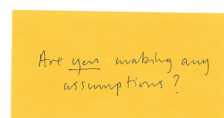 Are you making any
assumptions?